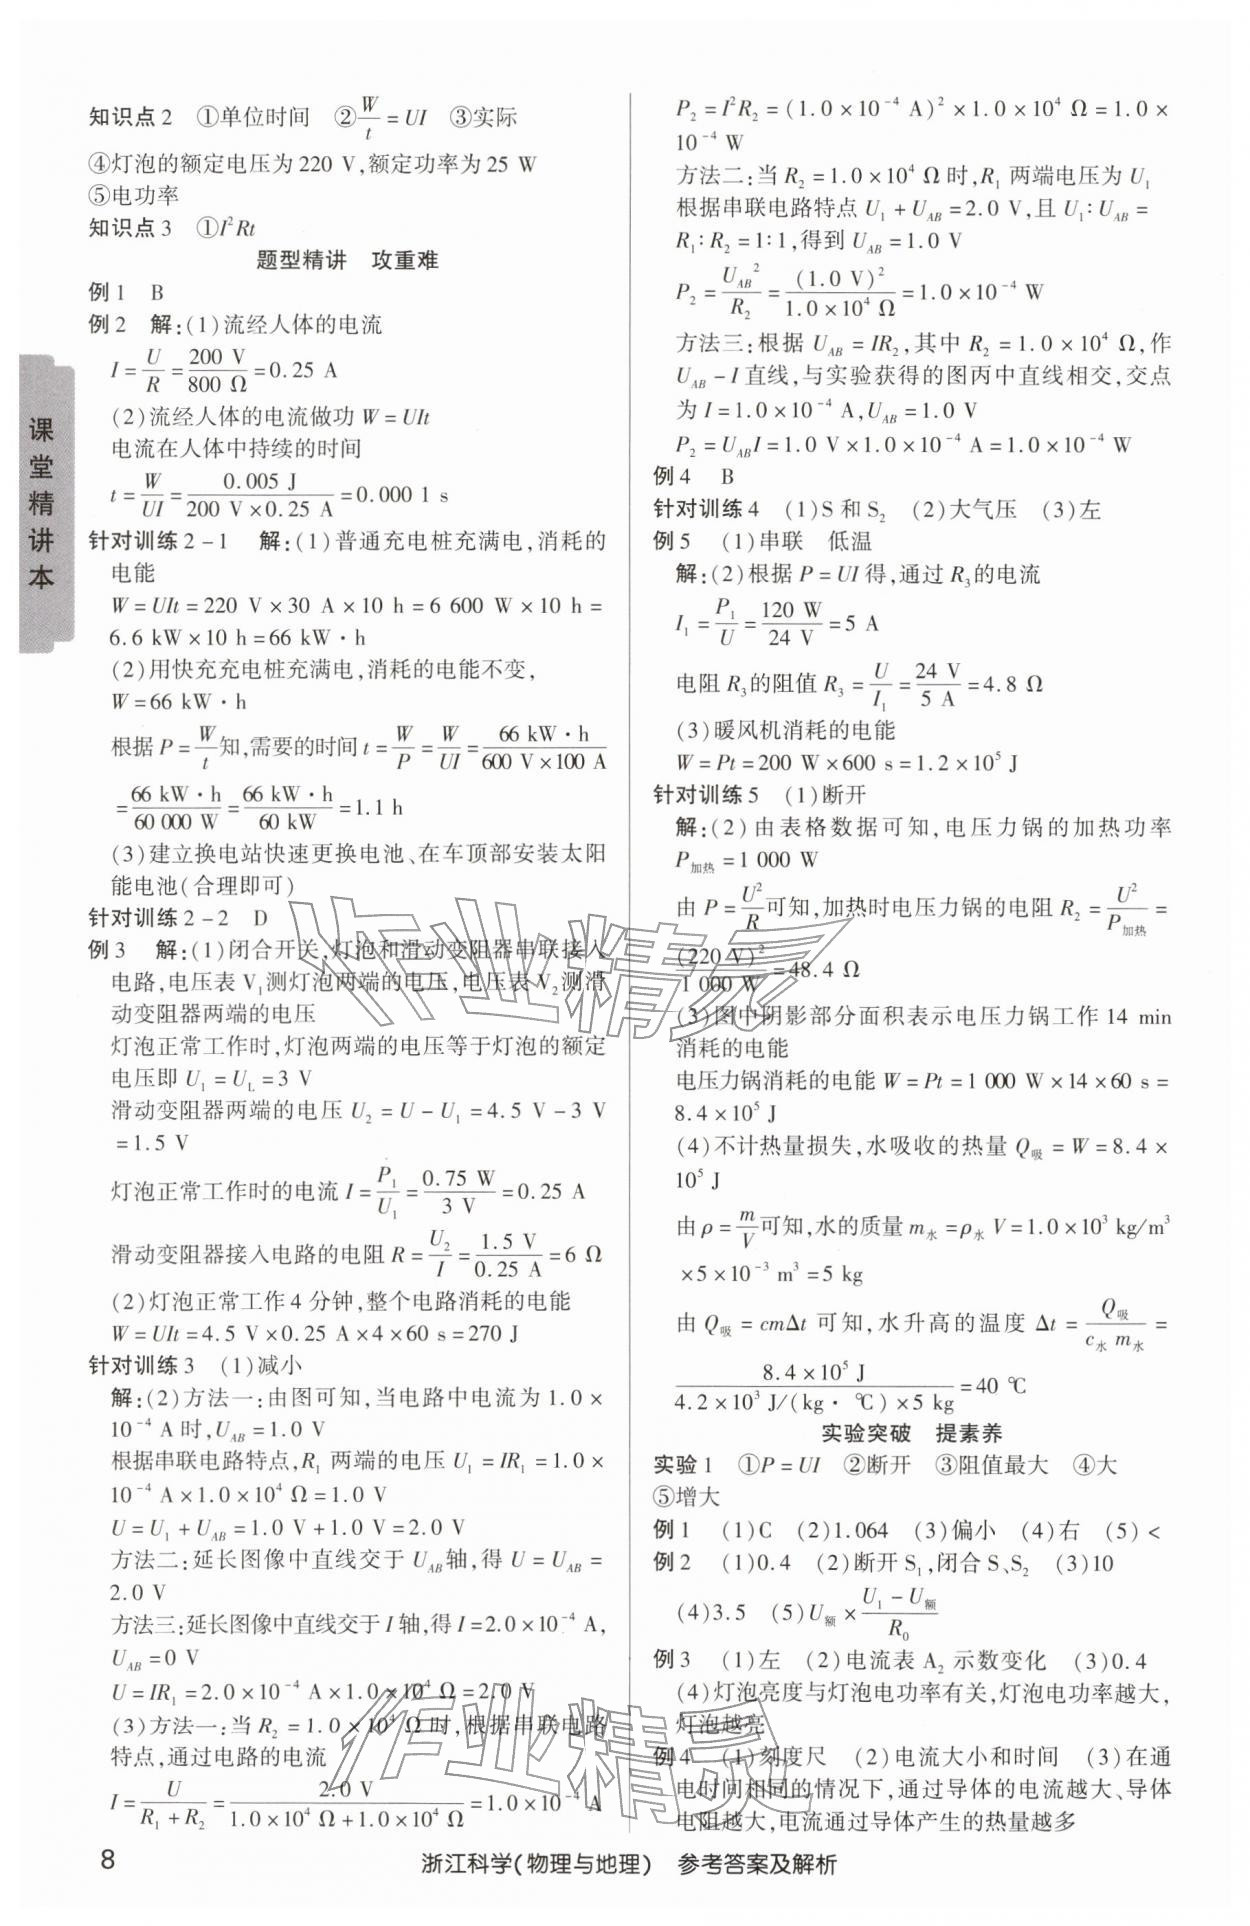 知识点2　①单位时间　②W/t=UI　③实际
④灯泡的额定电压为220 V,额定功率为25 W
⑤电功率
知识点3　①I²Rt
题型精讲　攻重难
例1　B
例2　解:(1)流经人体的电流
I=U/R=200 V/800 Ω=0.25 A
(2)流经人体的电流做功W=UIt
电流在人体中持续的时间
t=W/UI=0.005 J/(200 V×0.25 A)=0.000 1 s
针对训练2-1　解:(1)普通充电桩充满电,消耗的
电能
W=UIt=220 V×30 A×10 h=6 600 W×10 h=
6.6 kW×10 h=66 kW·h
(2)用快充充电桩充满电,消耗的电能不变,
W=66 kW·h
根据P=W/t知,需要的时间t=W/P=W/UI=66 kW·h/(600 V×100 A)
=66 kW·h/60 000 W=66 kW·h/60 kW=1.1 h
(3)建立换电站快速更换电池、在车顶部安装太阳
能电池(合理即可)
针对训练2-2　D
例3　解:(1)闭合开关,灯泡和滑动变阻器串联接入
电路,电压表V₁测灯泡两端的电压,电压表V₂测滑
动变阻器两端的电压
灯泡正常工作时,灯泡两端的电压等于灯泡的额定
电压即U₁=U_L=3 V
滑动变阻器两端的电压U₂=U-U₁=4.5 V-3 V
=1.5 V
灯泡正常工作时的电流I=P₁/U₁=0.75 W/3 V=0.25 A
滑动变阻器接入电路的电阻R=U₂/I=1.5 V/0.25 A=6 Ω
(2)灯泡正常工作4分钟,整个电路消耗的电能
W=UIt=4.5 V×0.25 A×4×60 s=270 J
针对训练3　(1)减小
解:(2)方法一:由图可知,当电路中电流为1.0×
10⁻⁴ A时,U_AB=1.0 V
根据串联电路特点,R₁两端的电压U₁=IR₁=1.0×
10⁻⁴ A×1.0×10⁴ Ω=1.0 V
U=U₁+U_AB=1.0 V+1.0 V=2.0 V
方法二:延长图像中直线交于U_AB轴,得U=U_AB=
2.0 V
方法三:延长图像中直线交于I轴,得I=2.0×10⁻⁴ A,
U_AB=0 V
U=IR₁=2.0×10⁻⁴ A×1.0×10⁴ Ω=2.0 V
(3)方法一:当R₂=1.0×10⁴ Ω时,根据串联电路
特点,通过电路的电流
I=U/(R₁+R₂)=2.0 V/(1.0×10⁴ Ω+1.0×10⁴ Ω)=1.0×10⁻⁴ A
P₂=I²R₂=(1.0×10⁻⁴ A)²×1.0×10⁴ Ω=1.0×
10⁻⁴ W
方法二:当R₂=1.0×10⁴ Ω时,R₁两端电压为U₁
根据串联电路特点U₁+U_AB=2.0 V,且U₁∶U_AB=
R₁∶R₂=1∶1,得到U_AB=1.0 V
P₂=U_AB²/R₂=(1.0 V)²/(1.0×10⁴ Ω)=1.0×10⁻⁴ W
方法三:根据U_AB=IR₂,其中R₂=1.0×10⁴ Ω,作
U_AB-I直线,与实验获得的图丙中直线相交,交点
为I=1.0×10⁻⁴ A,U_AB=1.0 V
P₂=U_ABI=1.0 V×1.0×10⁻⁴ A=1.0×10⁻⁴ W
例4　B
针对训练4　(1)S和S₂　(2)大气压　(3)左
例5　(1)串联　低温
解:(2)根据P=UI得,通过R₃的电流
I₁=P₁/U=120 W/24 V=5 A
电阻R₃的阻值R₃=U/I₁=24 V/5 A=4.8 Ω
(3)暖风机消耗的电能
W=Pt=200 W×600 s=1.2×10⁵ J
针对训练5　(1)断开
解:(2)由表格数据可知,电压力锅的加热功率
P加热=1 000 W
由P=U²/R可知,加热时电压力锅的电阻R₂=U²/P加热=
(220 V)²/1 000 W=48.4 Ω
(3)图中阴影部分面积表示电压力锅工作14 min
消耗的电能
电压力锅消耗的电能W=Pt=1 000 W×14×60 s=
8.4×10⁵ J
(4)不计热量损失,水吸收的热量Q吸=W=8.4×
10⁵ J
由ρ=m/V可知,水的质量m水=ρ水V=1.0×10³ kg/m³
×5×10⁻³ m³=5 kg
由Q吸=cmΔt可知,水升高的温度Δt=Q吸/(c水m水)=
8.4×10⁵ J/(4.2×10³ J/(kg·℃)×5 kg)=40 ℃
实验突破　提素养
实验1　①P=UI　②断开　③阻值最大　④大
⑤增大
例1　(1)C　(2)1.064　(3)偏小　(4)右　(5)<
例2　(1)0.4　(2)断开S₁,闭合S、S₂　(3)10
(4)3.5　(5)U额×(U₁-U额)/R₀
例3　(1)左　(2)电流表A₂示数变化　(3)0.4
(4)灯泡亮度与灯泡电功率有关,灯泡电功率越大,
灯泡越亮
例4　(1)刻度尺　(2)电流大小和时间　(3)在通
电时间相同的情况下,通过导体的电流越大、导体
电阻越大,电流通过导体产生的热量越多
课堂精讲本
作业精灵
作业精灵
8
浙江科学(物理与地理)　参考答案及解析